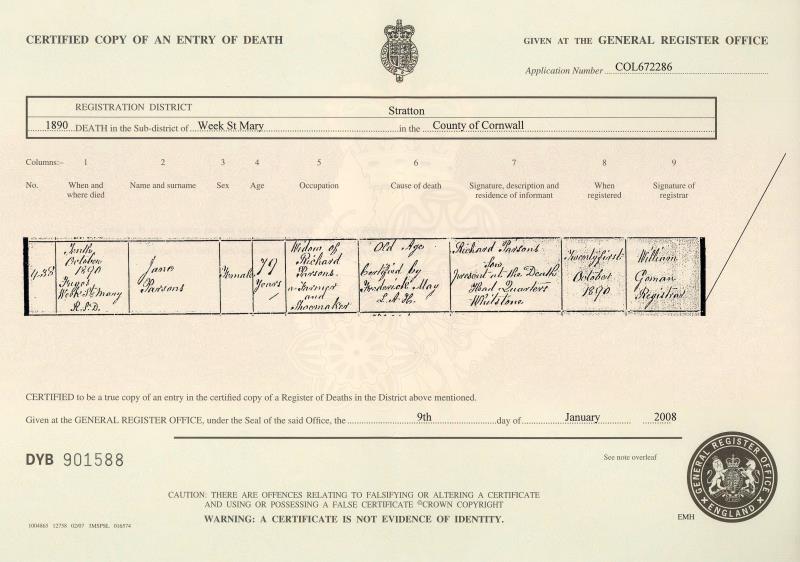 CERTIFIED COPY OF AN ENTRY OF DEATH
GIVEN AT THE GENERAL REGISTER OFFICE
Application Number COL672286
REGISTRATION DISTRICT Stratton
1890 DEATH in the Sub-district of Week St Mary in the County of Cornwall
Columns:- 1 2 3 4 5 6 7 8 9
No. When and where died Name and surname Sex Age Occupation Cause of death Signature, description and residence of informant When registered Signature of registrar
Tenth October 1890
Week St Mary R.S.D.
Jane Parsons
Female
79 Years
Widow of Richard Parsons a Farmer and Shoemaker
Old Age
Certified by Frederick May
Richard Parsons
Son
present at the Death
Head Quarters
Whitstone
Twenty first October 1890
William
Registrar
CERTIFIED to be a true copy of an entry in the certified copy of a Register of Deaths in the District above mentioned.
Given at the GENERAL REGISTER OFFICE, under the Seal of the said Office, the 9th day of January 2008
DYB 901588
See note overleaf
CAUTION: THERE ARE OFFENCES RELATING TO FALSIFYING OR ALTERING A CERTIFICATE
AND USING OR POSSESSING A FALSE CERTIFICATE ©CROWN COPYRIGHT
WARNING: A CERTIFICATE IS NOT EVIDENCE OF IDENTITY.
GENERAL REGISTER OFFICE
ENGLAND
EMH